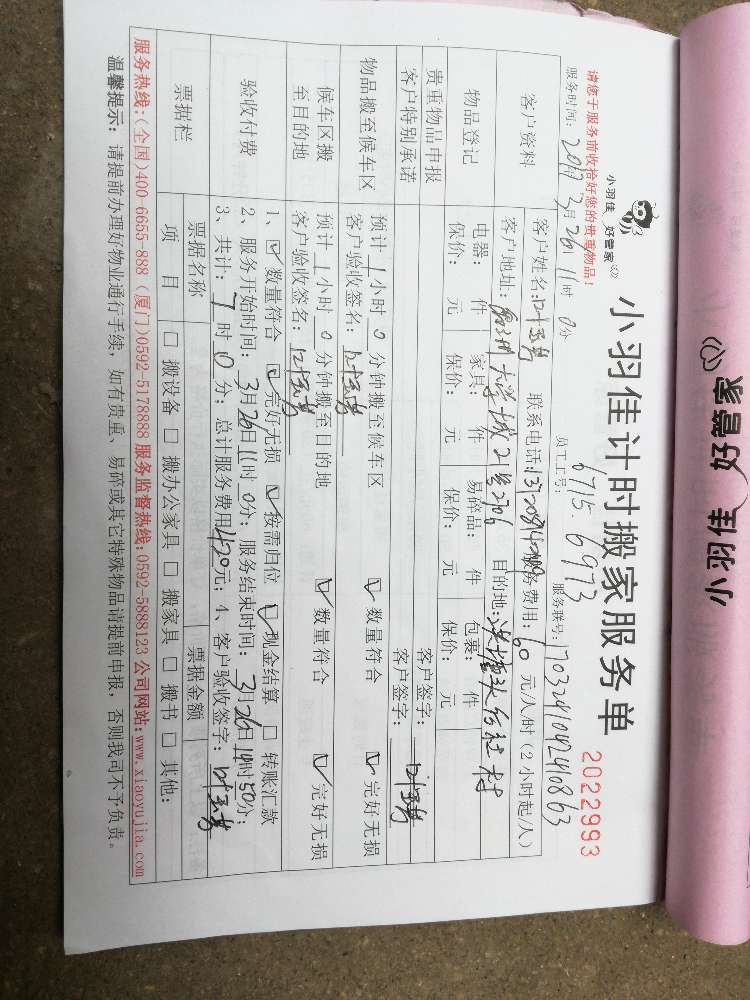 小羽佳 好管家
小羽佳 好管家
小羽佳计时搬家服务单
2022993
请您于服务前收拾好您的贵重物品!
员工工号: 6715 6973
服务时间: 2017 3月26日11时 0分
服务联号: 1703241042410863
客户资料
客户姓名: 联系电话: 服务费用: 60 元/人/时(2小时起/人)
客户地址: 大学城21号 目的地:
物品登记
电器: 件 家具: 件 易碎品: 件 包裹: 件
保价: 元 保价: 元 保价: 元 保价: 元
贵重物品申报 客户签字:
客户特别承诺 客户签字:
物品搬至候车区
预计 1 小时 0 分钟搬至候车区 ☑数量符合 ☑完好无损
客户验收签名:
候车区搬至目的地
预计 1 小时 0 分钟搬至目的地 ☑数量符合 ☑完好无损
客户验收签名:
验收付费
1、☑数量符合 ☑完好无损 ☑按需归位 ☑现金结算 □转账汇款
2、服务开始时间: 3月26日11时 0分; 服务结束时间: 3月26日14时50分;
3、共计: 7 时 0 分; 总计服务费用420元; 4、客户验收签字:
票据栏
票据名称 票据金额
项目 □搬设备 □搬办公家具 □搬家具 □搬书 □其他:
服务热线:(全国)400-6655-888 (厦门)0592-5178888 服务监督热线:0592-5888123 公司网站:www.xiaoyujia.com
温馨提示: 请提前办理好物业通行手续, 如有贵重、易碎或其它特殊物品请提前申报, 否则我司不予负责。